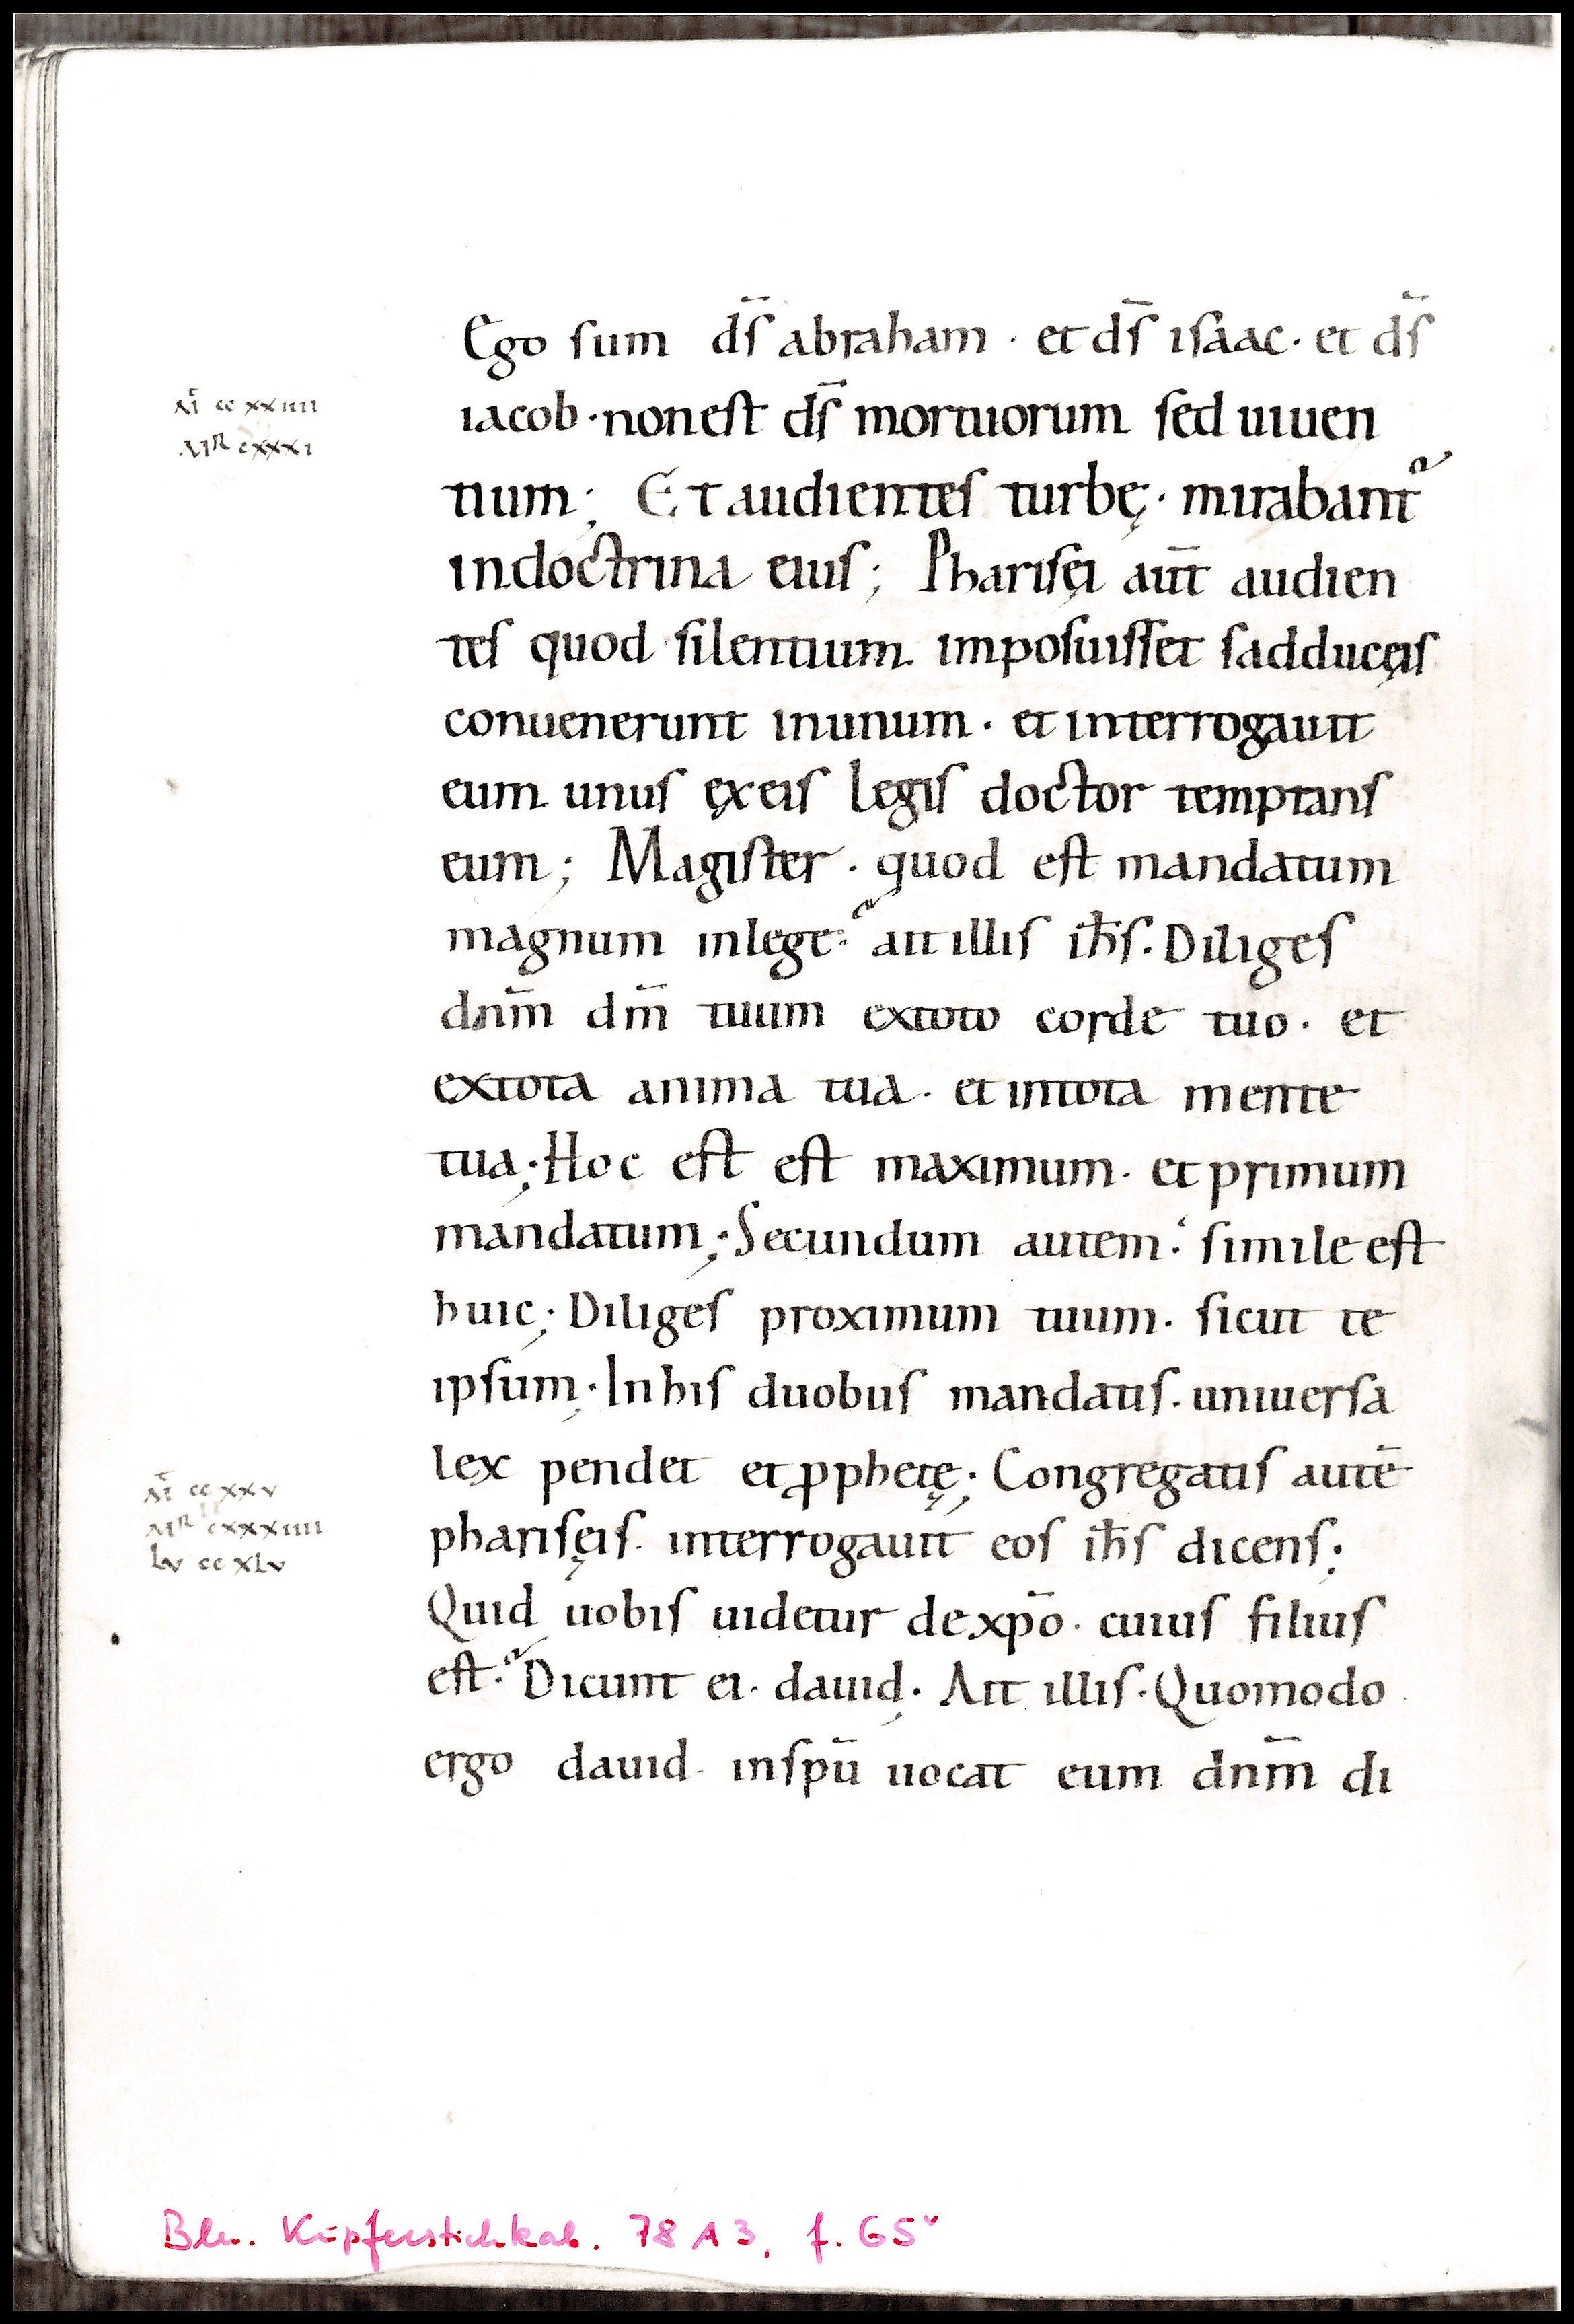 Ego sum dS̄ abraham · et dS̄ isaac · et dS̄
M̄ ccxxiiii
iacob · non est dS̄ mortuorum sed uiuen
MR cxxxi
tium; Et audientes turbę · mirabant᷑
in doctrina eius; Pharisęi aut̄ audien
tes quod silentium imposuisset sadducęis
conuenerunt in unum · et interrogauit
eum unus ęx eis legis doctor temptans
eum; Magister · quod est mandatum
magnum in lege? ait illis ih̄s. Diliges
dnm̄ dm̄ tuum ex toto corde tuo · et
ex tota anima tua · et in tota mente
tua; Hoc est est maximum · et primum
mandatum; Secundum autem: simile est
huic; Diliges proximum tuum · sicut te
ipsum; In his duobus mandatis · uniuersa
lex pendet et ꝓphetę; Congregatis autē
M̄ ccxxv
pharisęis · interrogauit eos ih̄s dicens;
MR cxxxiiii
Lv ccxLv
Quid uobis uidetur de xpō · cuius filius
est? Dicunt ei · dauid; Ait illis · Quomodo
ergo dauid · in spū uocat eum dnm̄ di
Bln. Kupferstichkab. 78 A 3, f. 65v